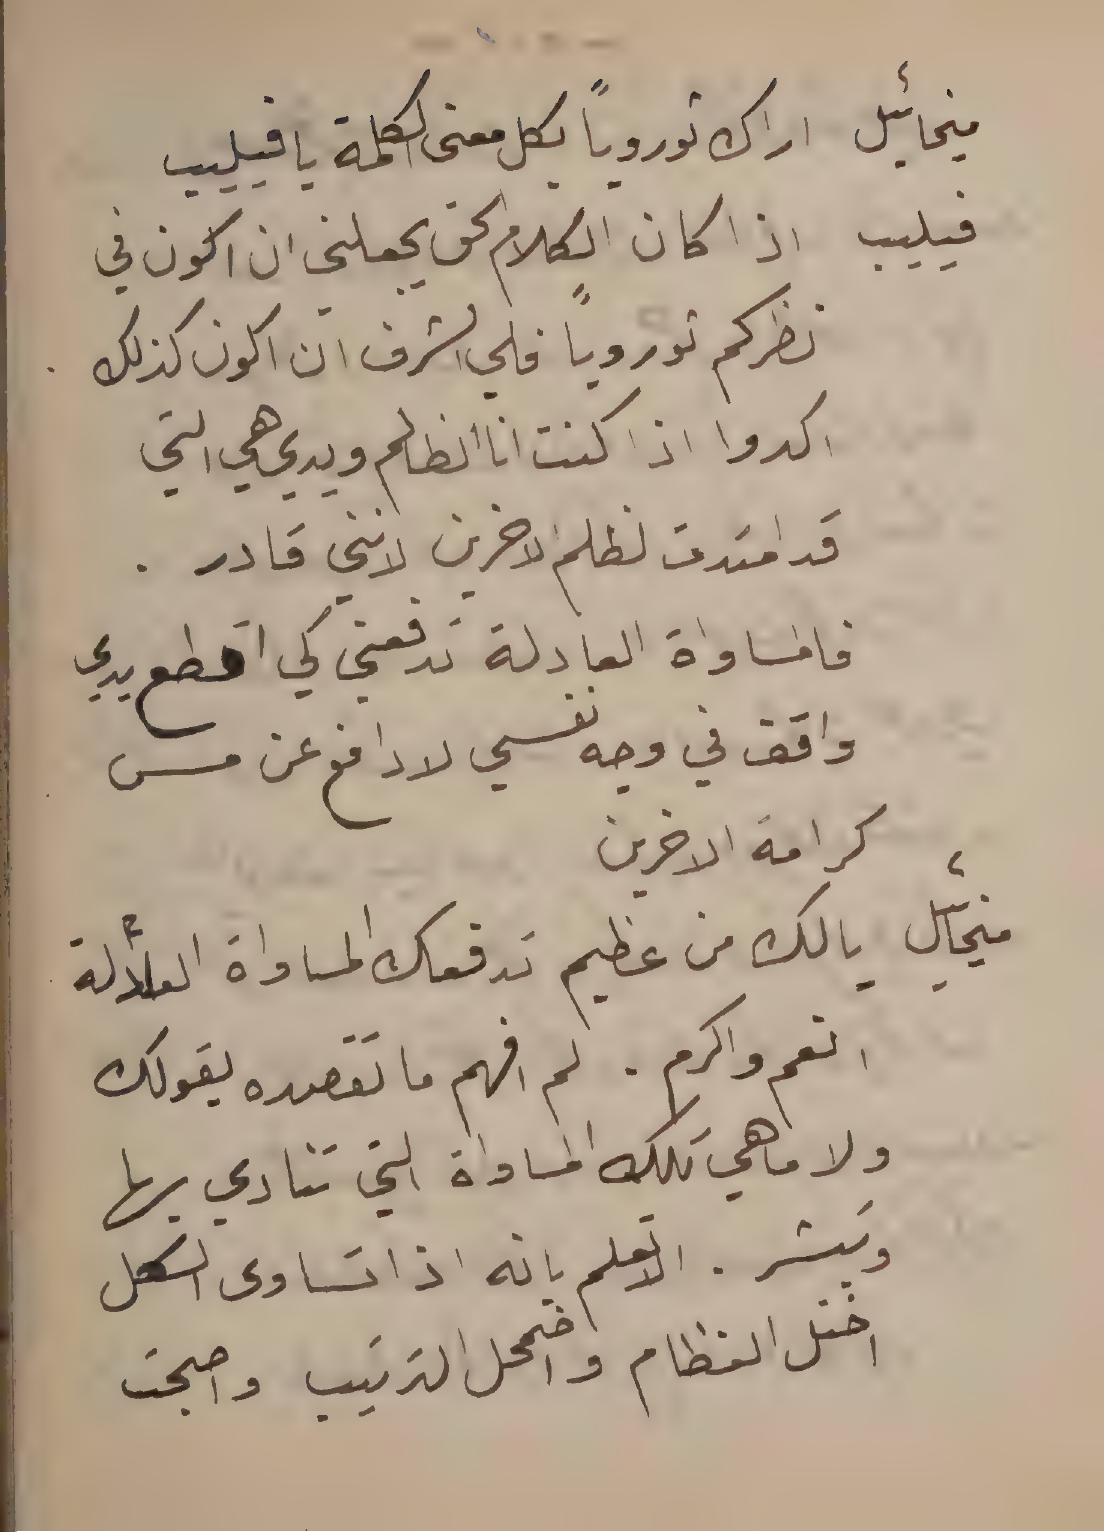 ميخائيل اراك ثوروياً بكل معنى الكلمة يا فيليب
فيليب اذا كان الكلام الحق يجعلني ان اكون في
نظركم ثوروياً فلي الشرف ان اكون كذلك .
اكدوا اذا كنت انا الظالم ويدي هي التي
قد امتدت لظلم الاخرين لانني قادر .
فالمساواة العادلة تدفعني كي اقطع يدي
واقف في وجه نفسي لادافع عن مس
كرامة الاخرين
ميخائيل يالك من عظيم تدفعك المساواة العادلة
انعم واكرم . لم افهم ما تقصده بقولك
ولا ما هي تلك المساواة التي تنادي بها
وتبشر . الا تعلم بانه اذا تساوى الكل
اختل النظام واضمحل الترتيب واصبحت